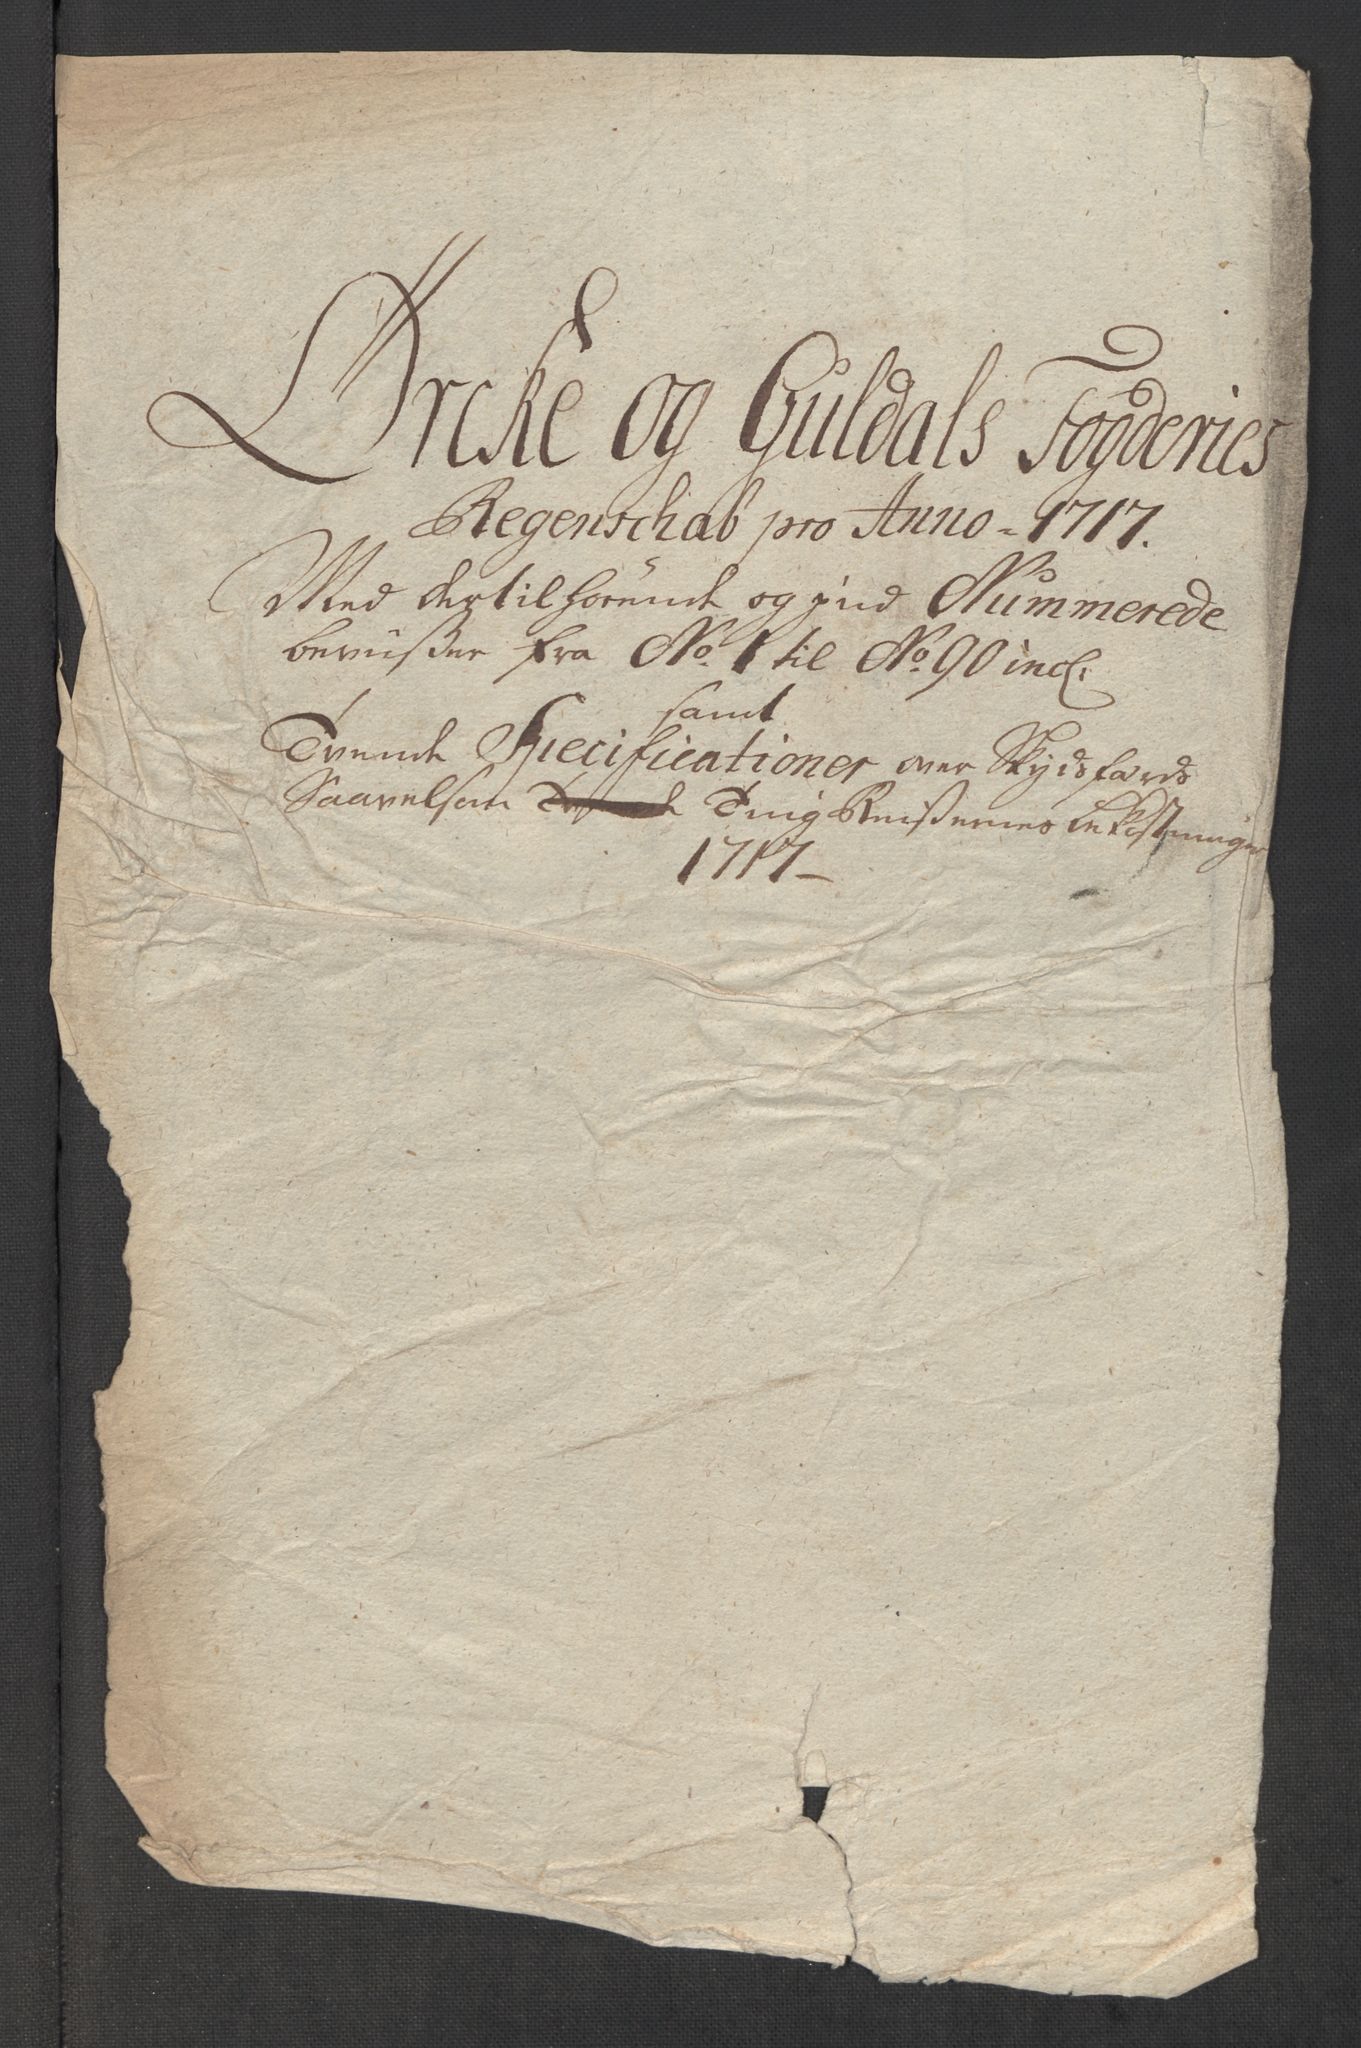 Ørcke og Guldals Fogderies
Regenschab pro Anno - 1717.
Med dertilhörende og ind Nummerede
beviißer fra No. 1 til No. 90 incl:
samt
Tvende Specificationer over Skydsfærds
Saavelsom Ting Reisernes bekostninger
1717-